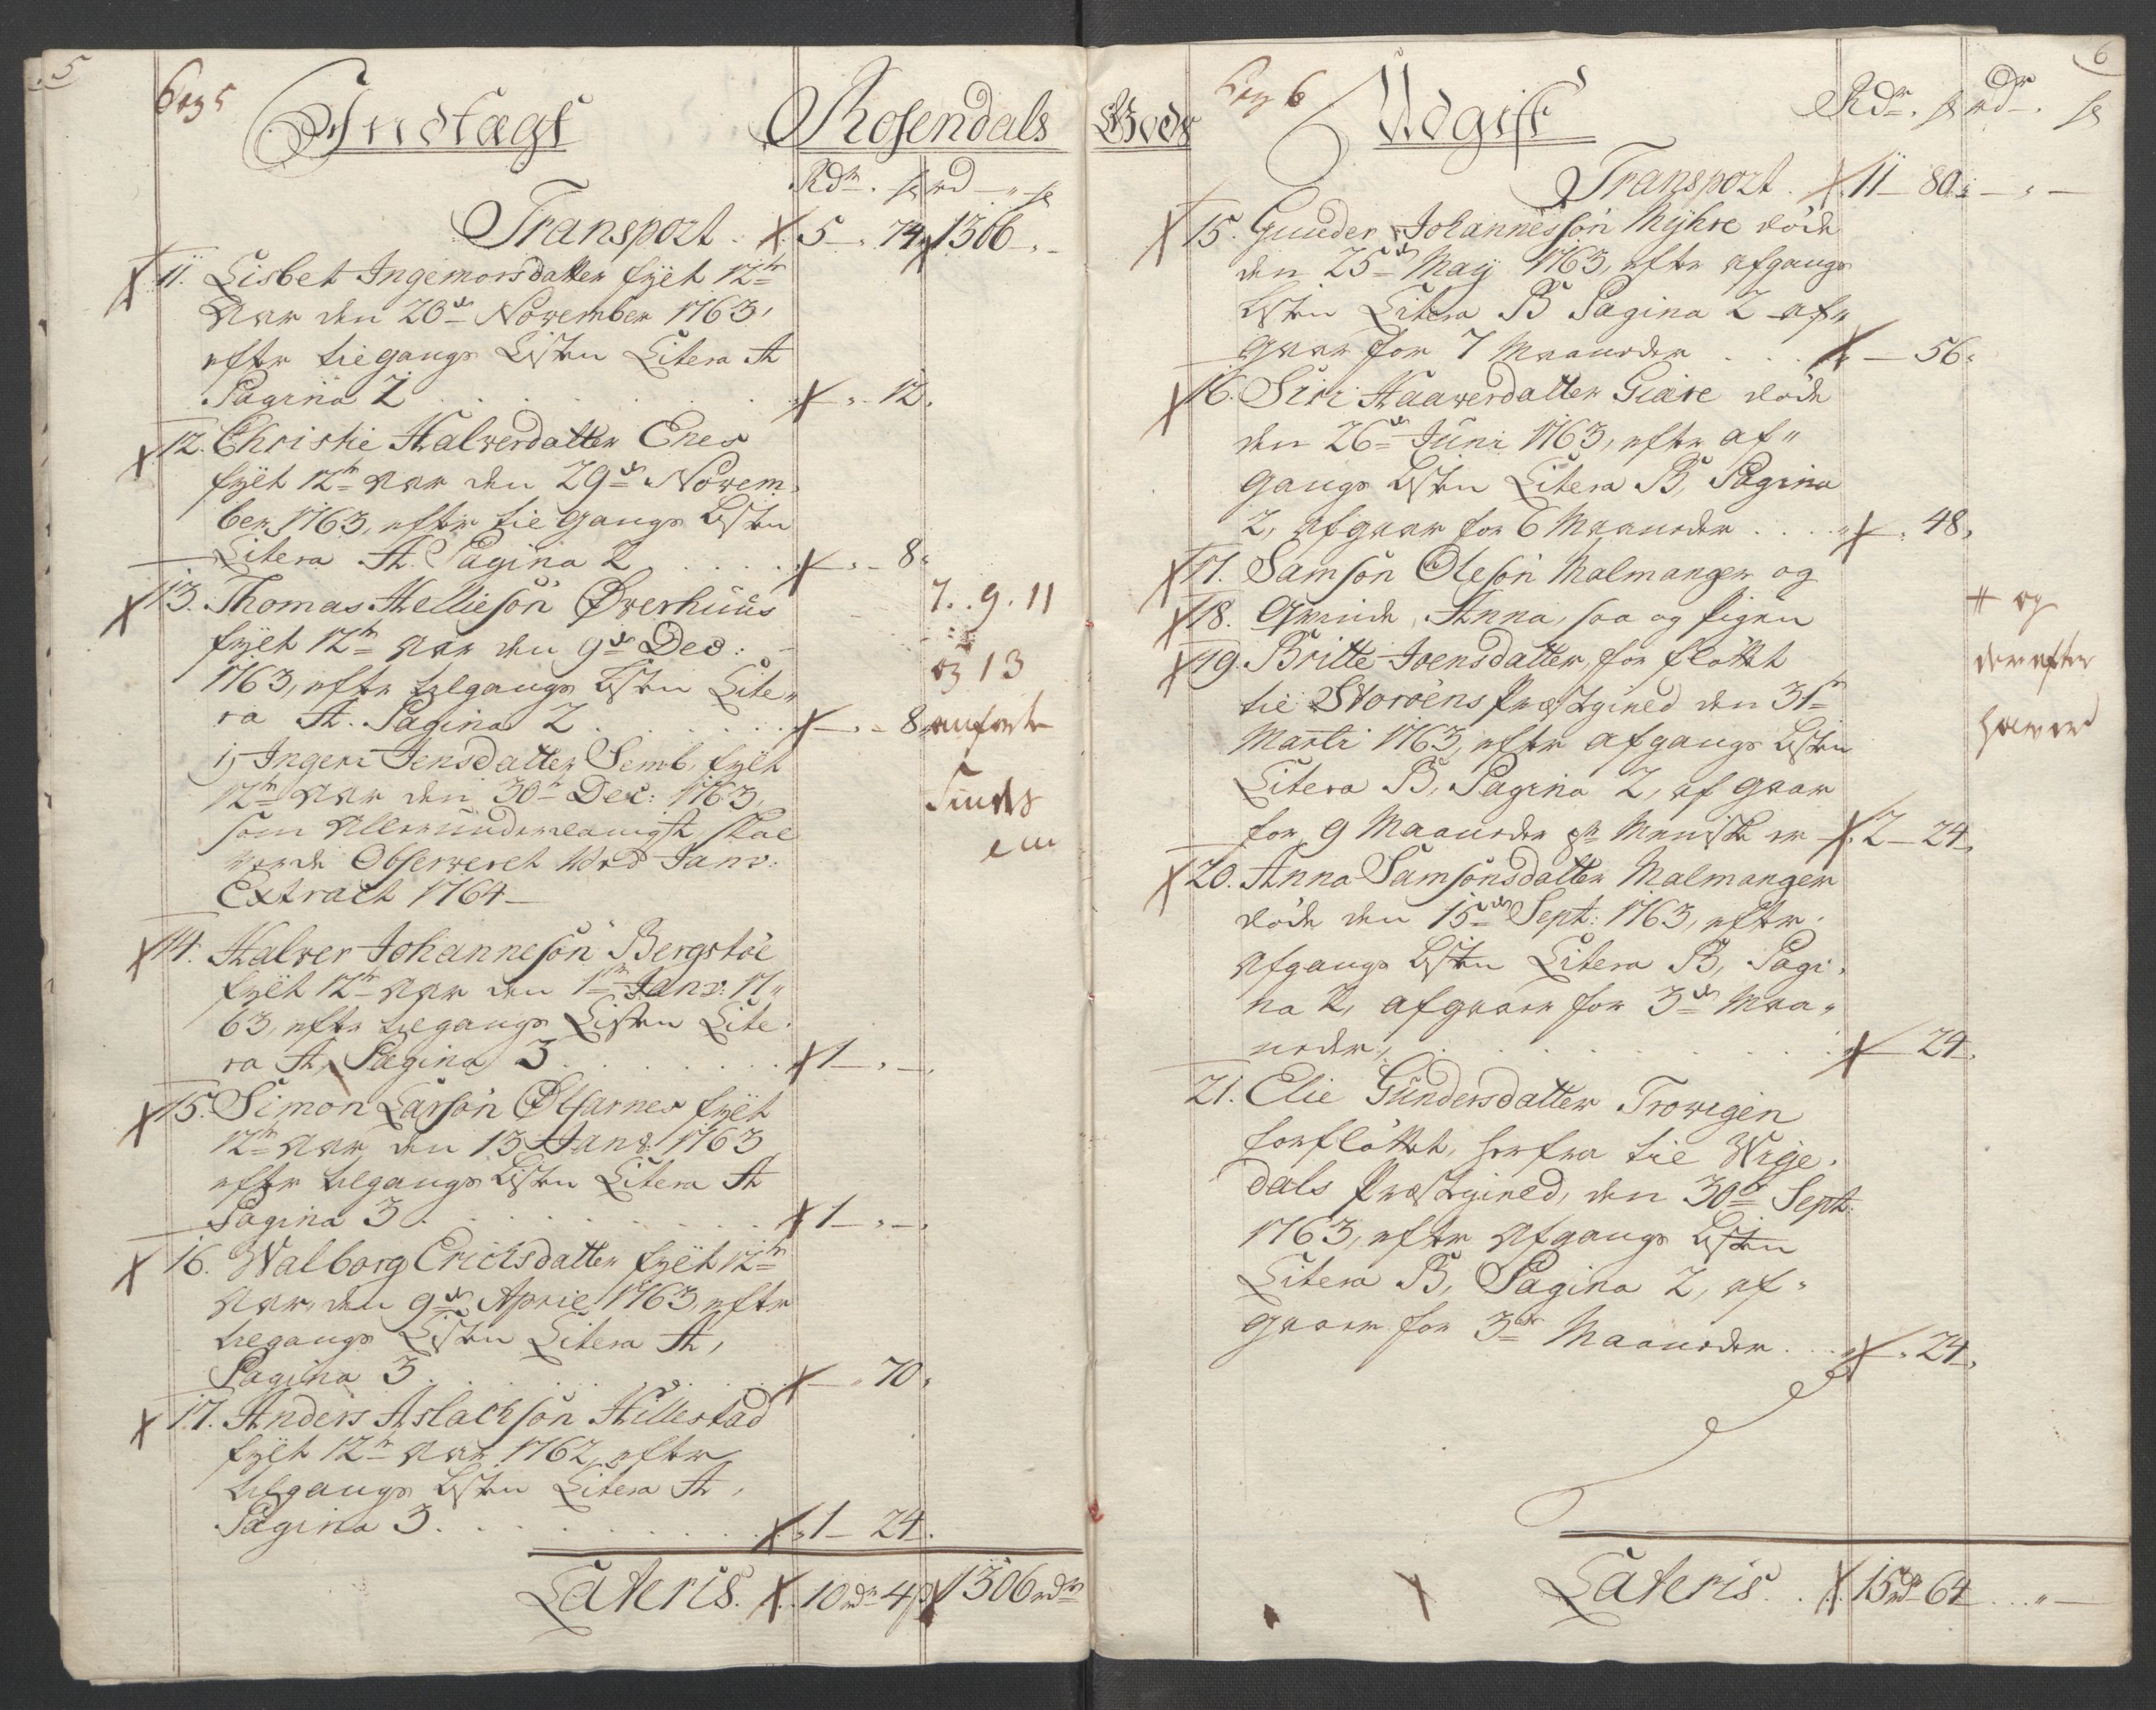 5
pag 5
Indtægt Rosendals
Rdr. ß rd ß
Transport. 5 74 1306
11. Lisbet Ingemorsdatter fyët 12te
Aar den 20de November 1763,
efter tilgangs Listen Litera A
Pagina 2 . . . 12.
12. Christie Halverdatter Enes
fyët 12te Aar den 29de Novem-
ber 1763, efter tilgangs Listen
Litera A. Pagina 2 . . . 8
13. Thomas Hellieson Øverhuus
fyët 12te Aar den 9de Dec:
1763, efter tilgangs Listen Lite-
ra A. Pagina 2 . . . 8
7. 9. 11
og 13
anførte
Findes
ei
Ingeri Jensdatter Semb, fyët
12te Aar den 30te Dec: 1763,
som Allerunderdanigst skal
vorde Observeret ved Janv:
Extract 1764
14. Halver Johanneson Bergstöe
fyët 12te Aar den 1te Janv: 17-
63, efter tilgangs Listen Lite-
ra A, Pagina 3 . . . 1
15. Simon Larson Ølfarnes fyët
12te Aar den 13 Janv: 1763
efter tilgangs Listen Litera A
Pagina 3 . . . 1
16. Walborg Erichsdatter fyët 12te
Aar, den 9de April 1763, efter
tilgangs Listen Litera A,
Pagina 3 . . . 70
17. Anders Aslachson Hillestad
fyët 12te Aar 1762, efter
tilgangs Listen Litera A,
Pagina 3 . . . 1 24
Lateris. 10rdr 4ß 1306rdr
6
Gods
pag 6
Udgift
Rdr. ß rdr. ß
Transport. 11 80
15. Gunder Johannesson Myhre döde
den 25de May 1763, efter afgangs
Listen Litera B Pagina 2 af-
gaar for 7 Maaneder . . . 56
16. Siri Haaverdatter Giære döde
den 26de Juni 1763, efter af-
gangs Listen Litera B, Pagina
2, afgaar for 6 Maaneder . . . 48
17. Samson Oleson Malmanger og
18. Qvinde, Anna, saa og Pigen
19. Britte Joensdatter, for flöttet
til Storöens Præstegield den 31te
Marti 1763, efter afgangs Listen
Litera B, Pagina 2, af gaar
for 9 Maaneder pr Menniske er 2 24
# og
derefter
20. Anna Samsonsdatter Malmanger
döde den 15de Sept: 1763, efter
Afgangs Listen Litera B, Pagi-
na 2, afgaar for 3de Maa-
neder, . . . 24
21. Elie Gundersdatter Trovigen
forflöttet, herfra til Wige-
dals Præstegield, den 30te Sept:
1763, efter Afgangs Listen
Litera B, Pagina 2, af-
gaar for 3de Maaneder . . . 24
Lateris. 15rdr 64